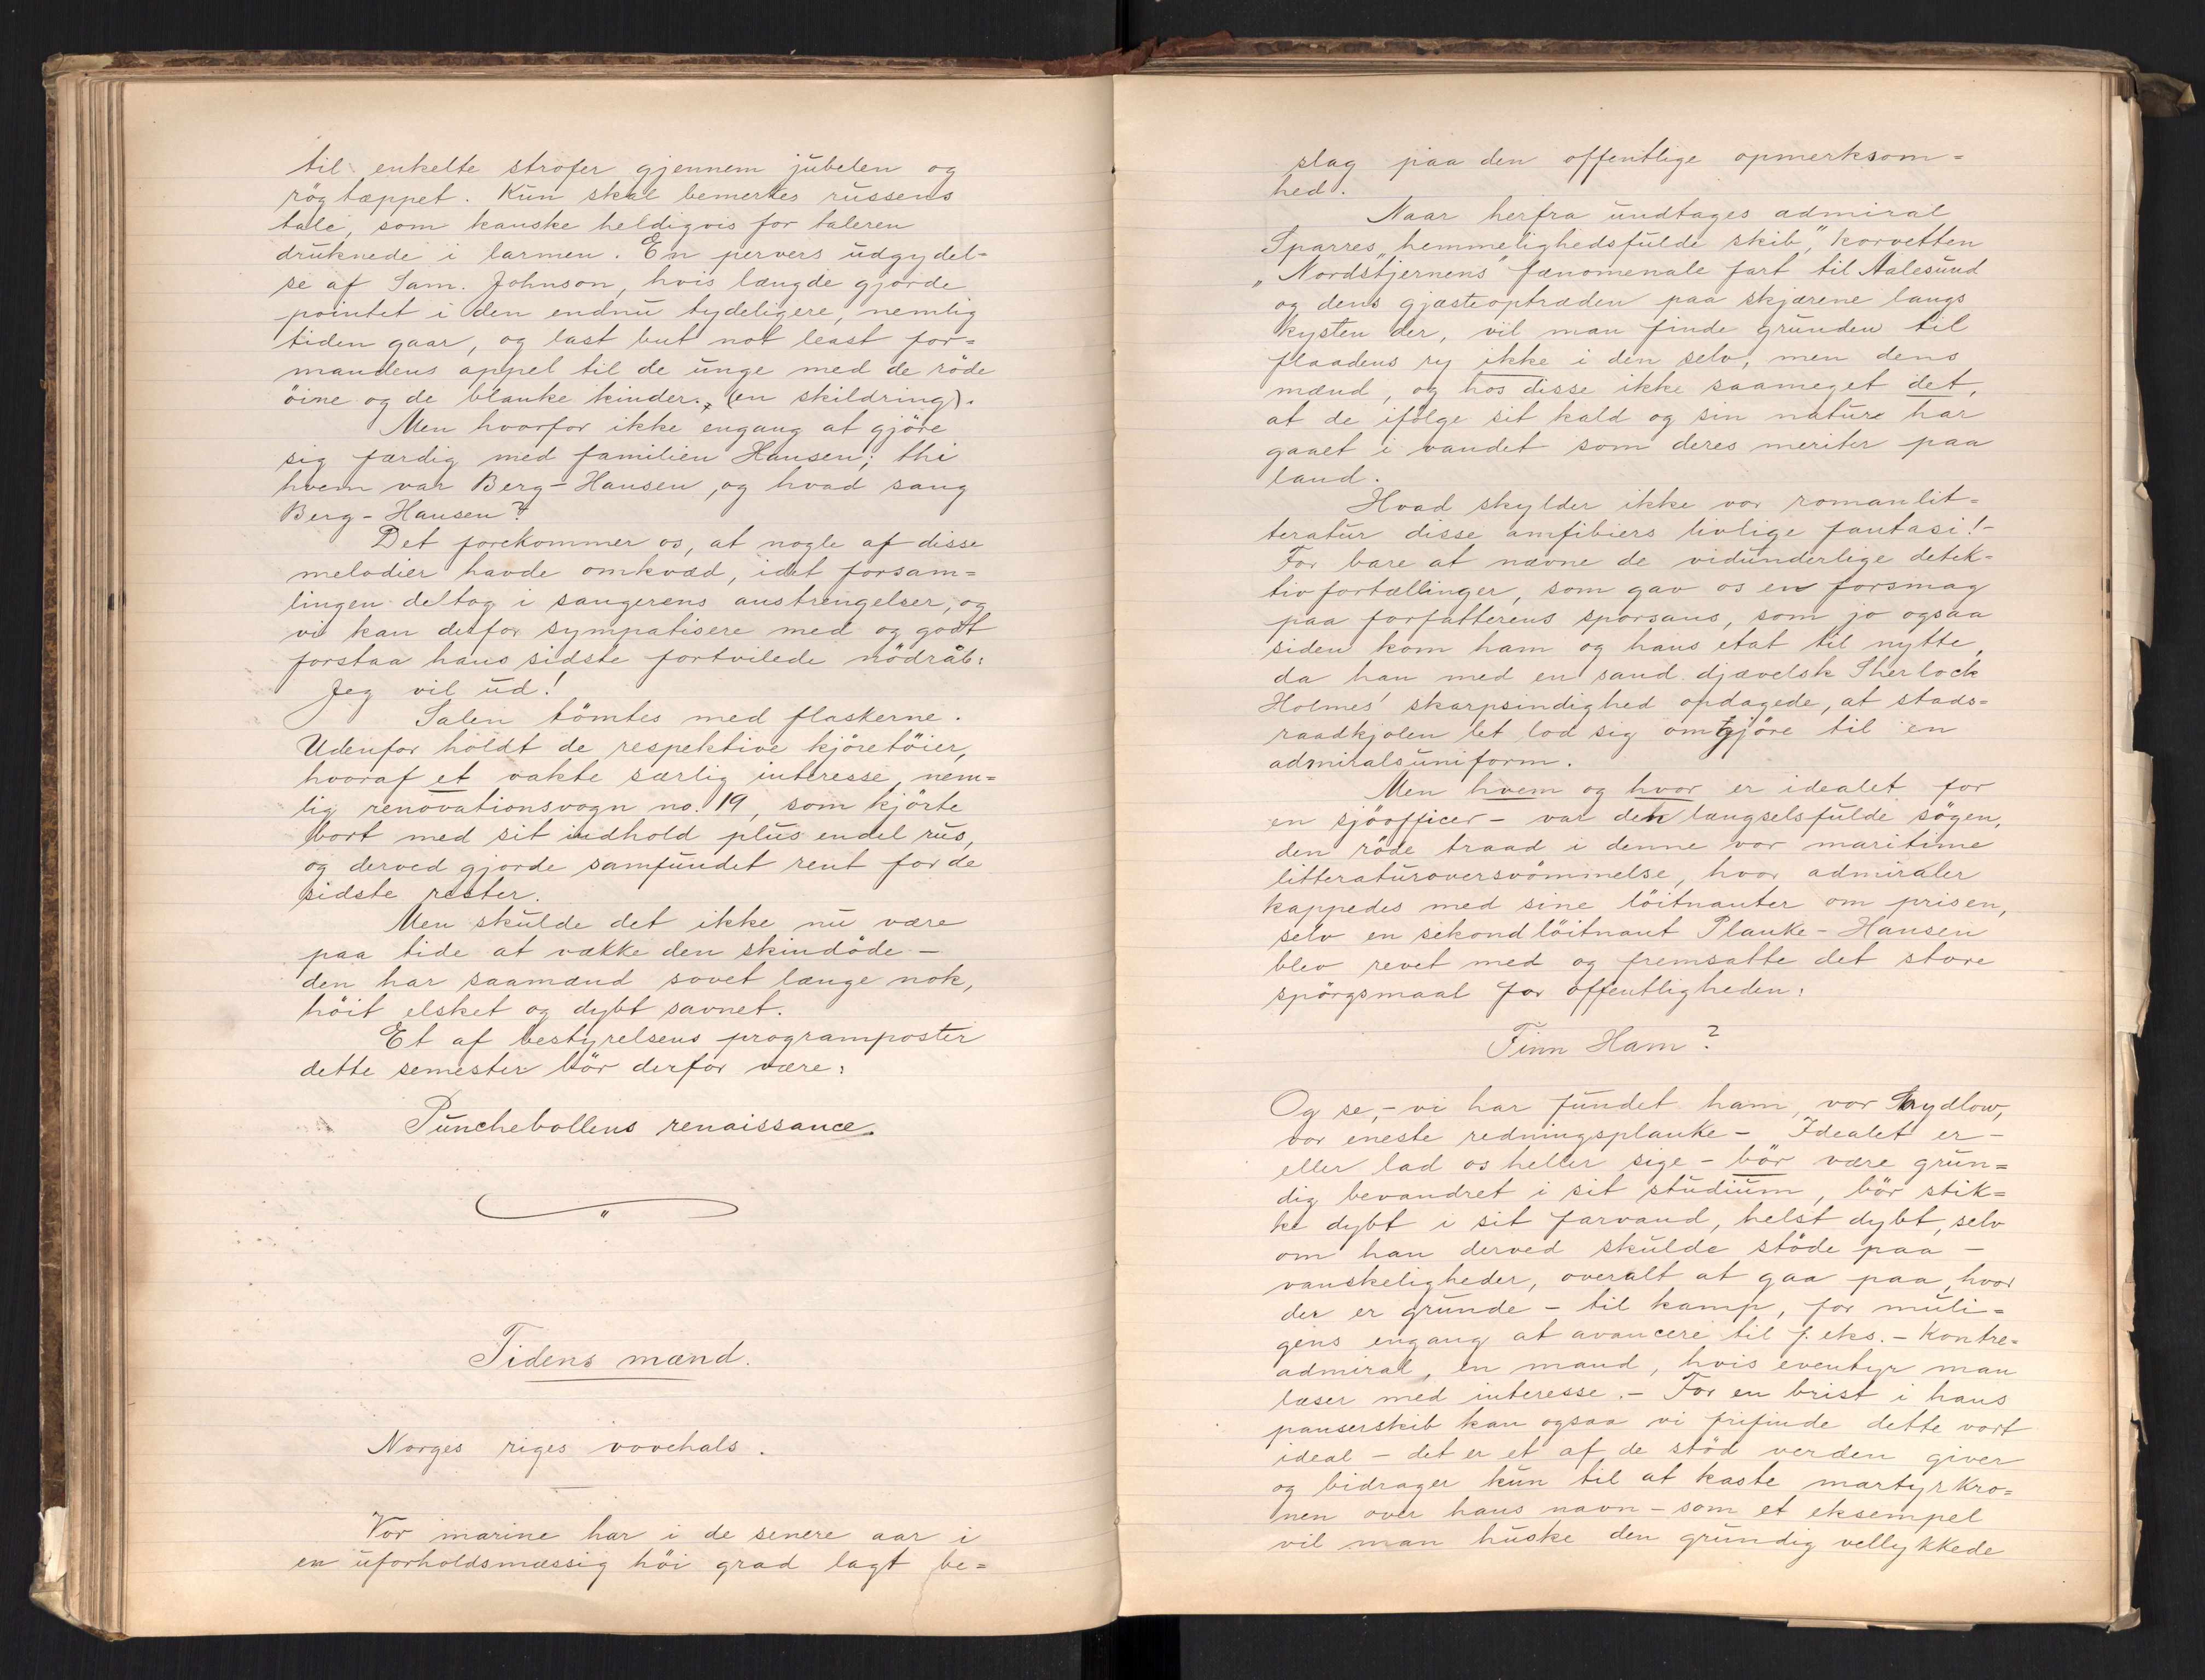 til enkelte strofer gjennem jubelen og
rögtæppet. Kun skal bemerkes russens
tale, som kanske heldigvis for taleren
druknede i larmen. En pervers udgydel-
se af Sam. Johnson, hvis længde gjorde
pointet i den endnu tydeligere, nemlig
tiden gaar, og last but not least for=
mandens appel til de unge med de röde
öine og de blanke kinder. (en skildring).
Men hvorfor ikke engang at gjöre
sig færdig med familien Hansen; thi
hvem var Berg-Hansen, og hvad sang
Berg-Hansen?
Det forekommer os, at nogle af disse
melodier havde omkvæd, idet forsam=
lingen deltog i sangerens anstrengelser, og
vi kan derfor sympatisere med og godt
forstaa hans sidste fortvilede nödråb:
Jeg vil ud!
Salen tömtes med flaskerne.
Udenfor holdt de respektive kjöretöier,
hvoraf et vakte særlig interesse, nem=
lig renovationsvogn no. 19, som kjörte
bort med sit indhold plus endel rus,
og derved gjorde samfundet rent for de
sidste rester.
Men skulde det ikke nu være
paa tide at vække den skindöde –
den har saamænd sovet længe nok,
höit elsket og dybt savnet.
Et af bestyrelsens programposter
dette semester bör derfor være:
Punchebollens renaissance.
Tidens mænd.
Norges riges vovehals.
Vor marine har i de senere aar i
en uforholdsmæssig höi grad lagt be=
slag paa den offentlige opmerksom=
hed.
Naar herfra undtages admiral
Sparres „hemmelighedsfulde skib", korvetten
„Nordstjernens" fænomenale fart til Aalesund
og dens gjæsteoptræden paa skjærene langs
kysten der, vil man finde grunden til
flaadens ry ikke i den selv, men dens
mænd, og hos disse ikke saameget det,
at de ifölge sit kald og sin natur har
gaaet i vandet som deres meriter paa
land.
Hvad skylder ikke vor romanlit=
teratur disse amfibiers livlige fantasi!–
For bare at nævne de vidunderlige detek=
tivfortællinger, som gav os en forsmag
paa forfatterens sporsans, som jo ogsaa
siden kom ham og hans etat til nytte,
da han med en sand djævelsk Sherlock
Holmes' skarpsindighed opdagede, at stads=
raadkjolen let lod sig omgjöre til en
admiralsuniform.
Men hvem og hvor er idealet for
en sjöofficer – var den længselsfulde sögen,
den röde traad i denne vor maritime
litteraturoversvömmelse, hvor admiraler
kappedes med sine löitnanter om prisen,
selv en sekondlöitnant Planke-Hansen
blev revet med og fremsatte det store
spörgsmaal for offentligheden:
Finn Ham?
Og se,– vi har fundet ham, vor
vor eneste redningsplanke – „Idealet er –
eller lad os heller sige – bör være grun=
dig bevandret i sit studium, bör stik=
ke dybt i sit farvand, helst dybt, selv
om han derved skulde stöde paa –
vanskeligheder, overalt at gaa paa, hvor
der er grunde – til kamp, for muli=
gens engang at avancere til f. eks. – Kontre=
admiral, en mand, hvis eventyr man
læser med interesse. – For en brist i hans
panserskib kan ogsaa vi frifinde dette vort
ideal – det er et af de stöd verden giver
og bidrager kun til at kaste martyrkro=
nen over hans navn – som et eksempel
vil man huske den grundig vellykkede